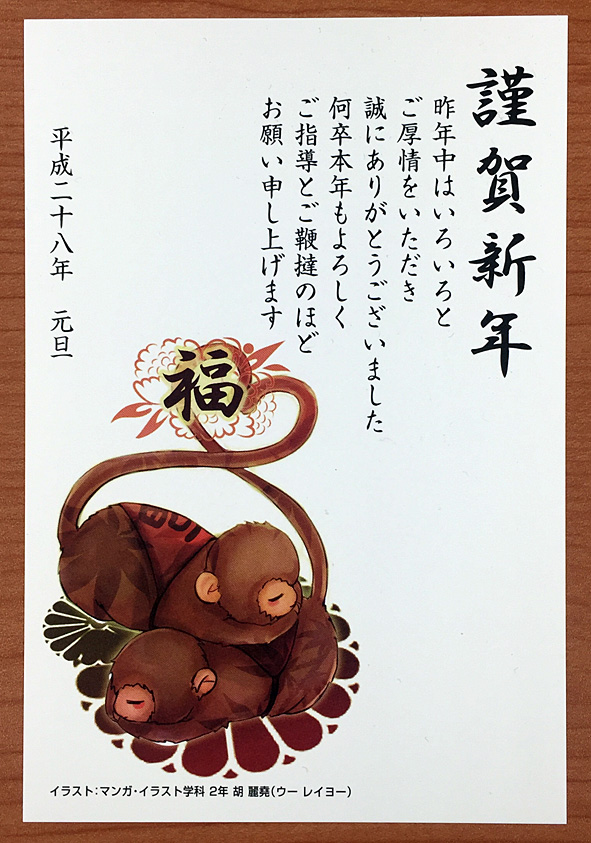 謹賀新年
昨年中はいろいろと
ご厚情をいただき
誠にありがとうございました
何卒本年もよろしく
ご指導とご鞭撻のほど
お願い申し上げます
平成二十八年　元旦
福
イラスト：マンガ・イラスト学科 2年 胡 麗堯（ウー レイヨー）